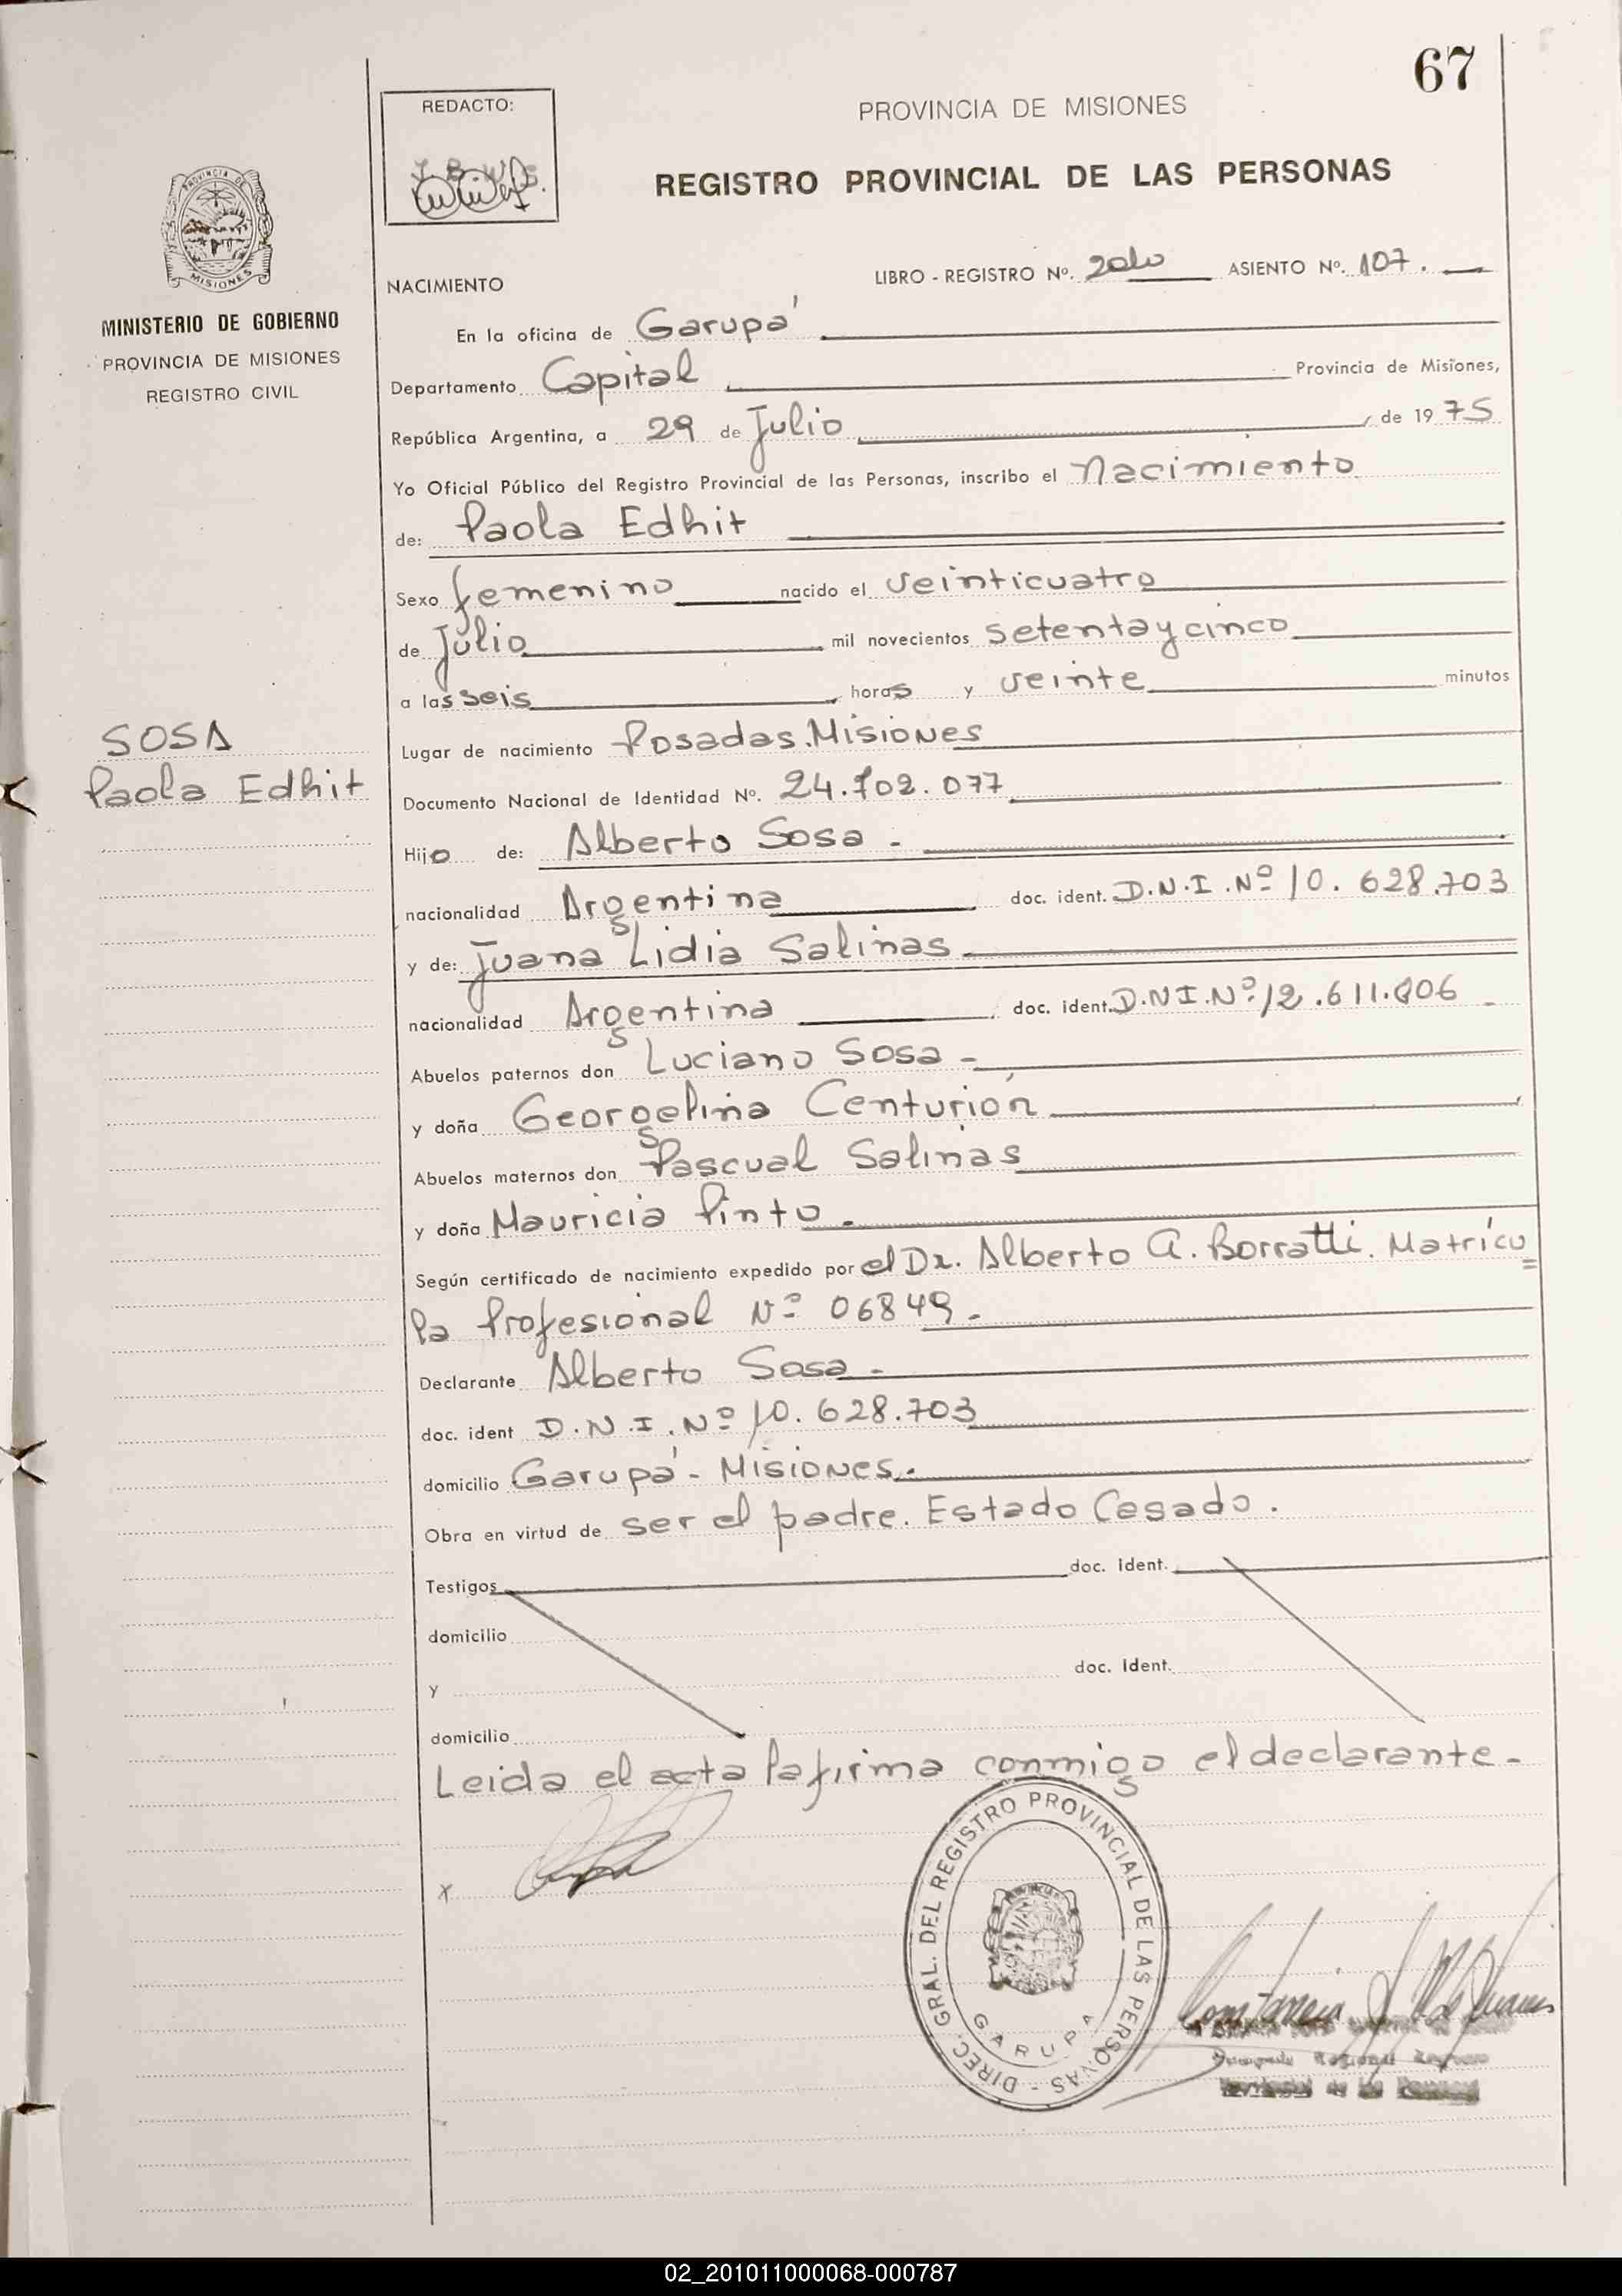 67
REDACTO:
PROVINCIA DE MISIONES
REGISTRO PROVINCIAL DE LAS PERSONAS
PROVINCIA DE
MISIONES
MINISTERIO DE GOBIERNO
PROVINCIA DE MISIONES
REGISTRO CIVIL
NACIMIENTO
LIBRO - REGISTRO Nº. ASIENTO Nº. 107.
En la oficina de Garupá
Departamento Capital Provincia de Misiones,
República Argentina, a 29 de Julio de 1975
Yo Oficial Público del Registro Provincial de las Personas, inscribo el Nacimiento
de: Paola Edhit
Sexo femenino nacido el veinticuatro
de Julio mil novecientos setenta y cinco
a las seis horas y veinte minutos
SOSA
Paola Edhit
Lugar de nacimiento Posadas. Misiones
Documento Nacional de Identidad Nº. 24.702.077
Hijo de: Alberto Sosa -
nacionalidad Argentina doc. ident. D.N.I. Nº 10.628.703
y de: Juana Lidia Salinas
nacionalidad Argentina doc. ident. D.N.I. Nº 12.611.806
Abuelos paternos don Luciano Sosa -
y doña Georgelina Centurión
Abuelos maternos don Pascual Salinas
y doña Mauricia Pinto.
Según certificado de nacimiento expedido por el Dr. Alberto A. Borratti. Matrícu=
la Profesional Nº 06849.
Declarante Alberto Sosa -
doc. ident D.N.I. Nº 10.628.703
domicilio Garupá - Misiones.
Obra en virtud de ser el padre. Estado Casado.
Testigos doc. ident.
domicilio
y doc. ident.
domicilio
Leida el acta la firma conmigo el declarante -
x
DIREC. GRAL. DEL REGISTRO PROVINCIAL DE LAS PERSONAS -
GARUPA
02_201011000068-000787